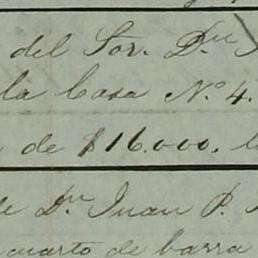 del Sor. Dn
la Casa No. 4.
de $16.000, l
Dn Juan P.
cuarto de barra